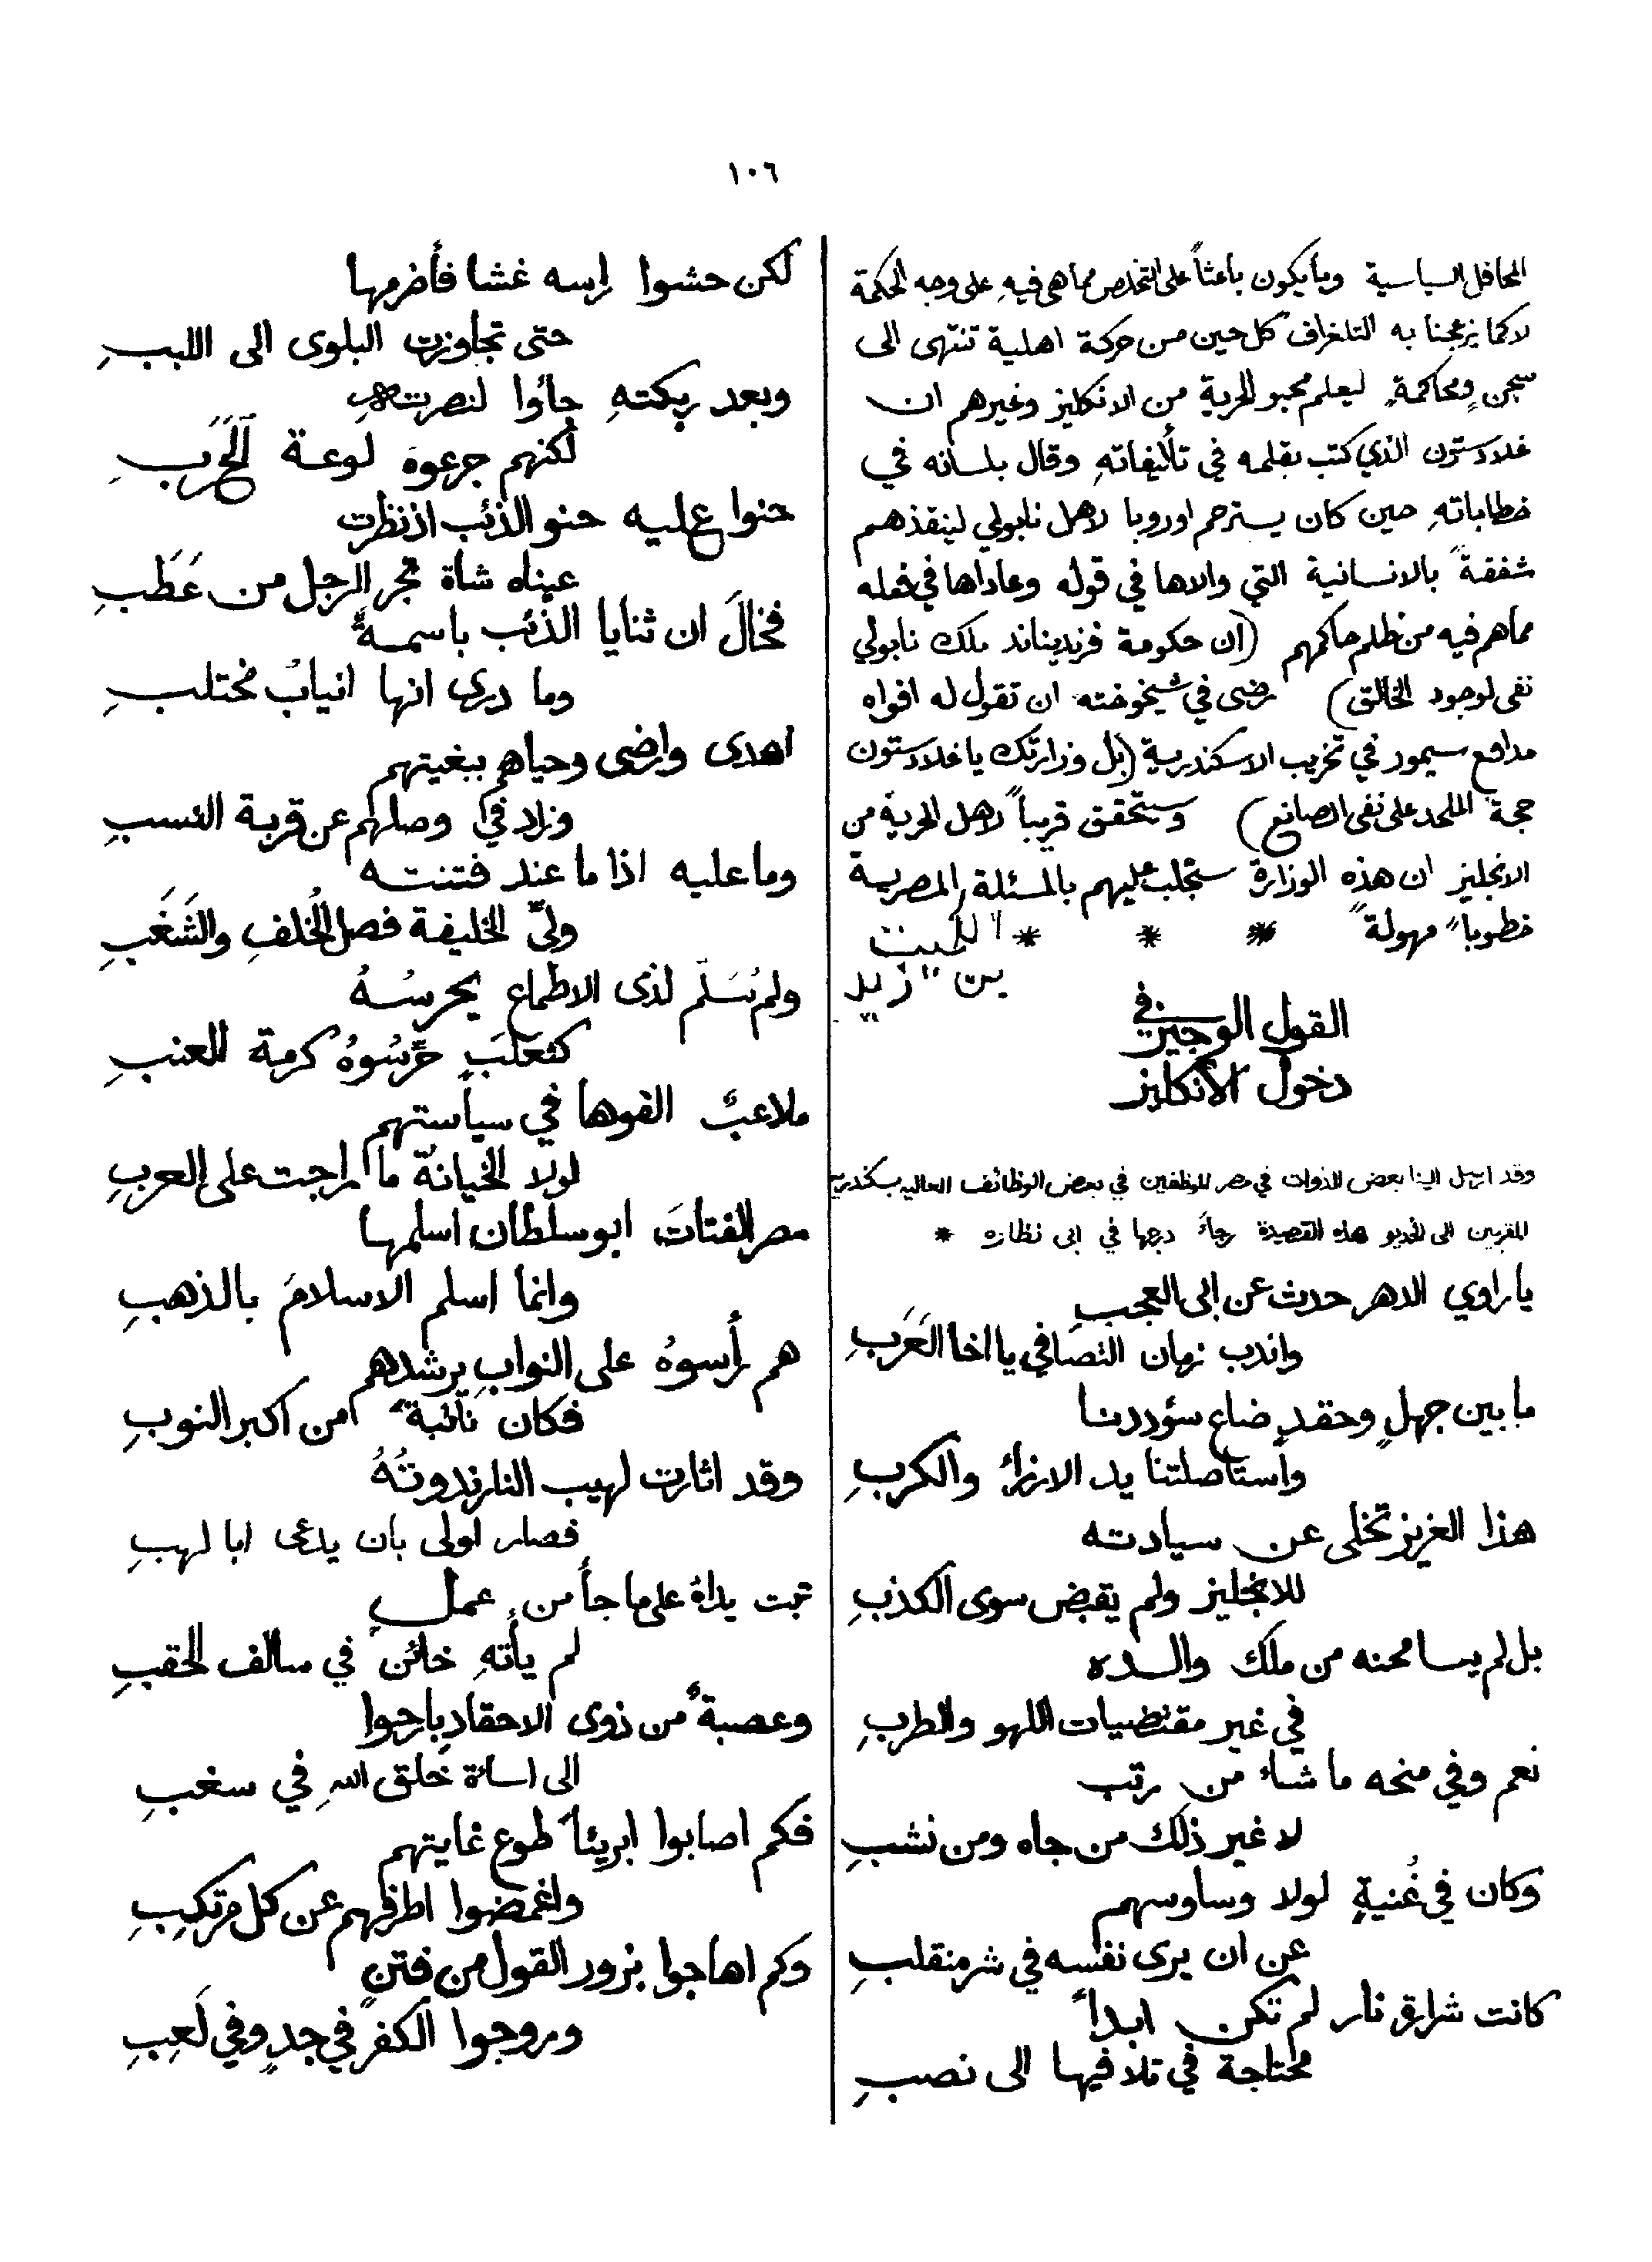 ١٠٦
المحافل السياسية وما يكون باعثاً على التخلص مما هي فيهِ على وجه الحكمة
لا كما يزعجنا به التلغراف كل حين من حركة اهلية تنتهى الى
سجنٍ ومحاكمةٍ ليعلم محبو الحرية من الانكليز وغيرهم ان
غلادستون الذي كتب بقلمه في تأليفاتهِ وقال بلسانه في
خطاباتهِ حين كان يسترحم اوروبا لاهل نابولي لينقذهم
شفقةً بالانسانية التي والاها في قوله وعاداها في فعله
مما هم فيه من ظلم حاكمهم (ان حكومة فرديناند ملك نابولي
نفى لوجود الخالق) رضى في شيخوخته ان تقول له افواه
مدافع سيمور في تخريب الاسكندرية (بل وزارتك يا غلادستون
حجة الملحد على نفى الصانع) وستحقق قريباً لاهل الحرية من
الانجليز ان هذه الوزارة ستجلب عليهم بالمسئلة المصرية
خطوباً مهولةً * * *
بن زيد
القول الوجيز في
دخول الانكليز
وقد ارسل الينا بعض الذوات في مصر الموظفين في بعض الوظائف العالية بسكندرية
المقربين الى الخديو هذه القصيدة رجاءً درجها في ابى نظاره *
يا راوي الدهر حدث عن ابى العجبِ
واندب زمان التصافي يا اخا العَرَبِ
ما بين جهلٍ وحقدٍ ضاع سؤددنا
واستاصلتنا يد الارزاء والكربِ
هذا العزيز تخلى عن سيادته
للانجليز ولم يقبض سوى الكذبِ
بل لم يسا محنه من ملك والده
في غير مقتضيات اللهو والطربِ
نعم وفي منحه ما شاء من رتب
لا غير ذلك من جاه ومن نشبِ
وكان في غُنيةٍ لولا وساوسهم
عن ان يرى نفسه في شر منقلبِ
كانت شرارة نار لم تكن ابداً
محتاجة في تلافيها الى نصبِ
لكن حشوا راسه غشا فأضرمها
حتى تجاوزت البلوى الى اللببِ
وبعد ربكتهِ جاؤا لنصرتهِ
لكنهم جرعوه لوعة الحَرَبِ
حنوا عليه حنو الذئب اذ نظرت
عيناه شاة تجر الرجل من عَطَبِ
فخالَ ان ثنايا الذئب باسمةٌ
وما درى انها انيابُ مختلبِ
اهدى وارضى وحياهم ببغيتهم
وزاد في وصلهم عن قربة النسبِ
وما عليه اذا ما عند فتنته
ولىّ الخليفة فصل الخُلفِ والشَغَبِ
ولم يُسَلّم لذى الاطماع يحرسُهُ
كثعلَبٍ حَرَّسُوهُ كرمة العنبِ
ملاعبٌ الفوها في سياستهم
لولا الخيانة ما راجت على العربِ
مصر الفتاتَ ابو سلطان اسلمها
وانما اسلم الاسلامَ بالذهبِ
هم رأسوهُ على النوابِ يرشدهم
فكان نآئبةً من اكبر النوبِ
وقد اثارت لهيب النار ندوتُهُ
فصار اولى بان يدعى ابا لهبِ
تبت يداهُ على ما جأ من عملٍ
لم يأتهِ خائن في سالف الحقبِ
وعصبةٌ من ذوى الاحقاد بارحوا
الى اساءة خلق اللهِ في سغبِ
فكم اصابوا ابريئاً طوع غايتهم
واغمضوا اطرفهم عن كل مرتكبِ
وكم اهاجوا بزور القول من فتنٍ
وروجوا الكفر في جدٍ وفي لَعِبِ